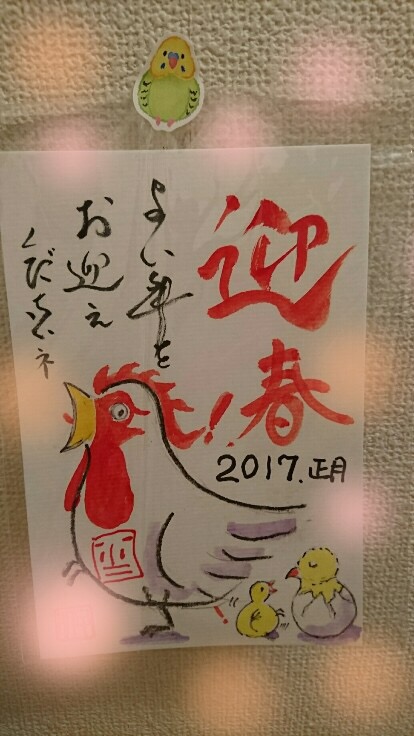 迎春!
2017.正月
よい年を
お迎え
くださいネ